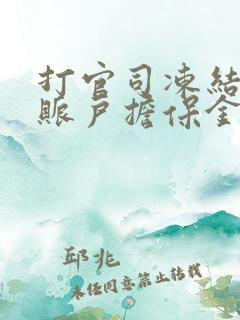 打官司凍結
賬戶擔保金
邱兆
未经同意禁止转载